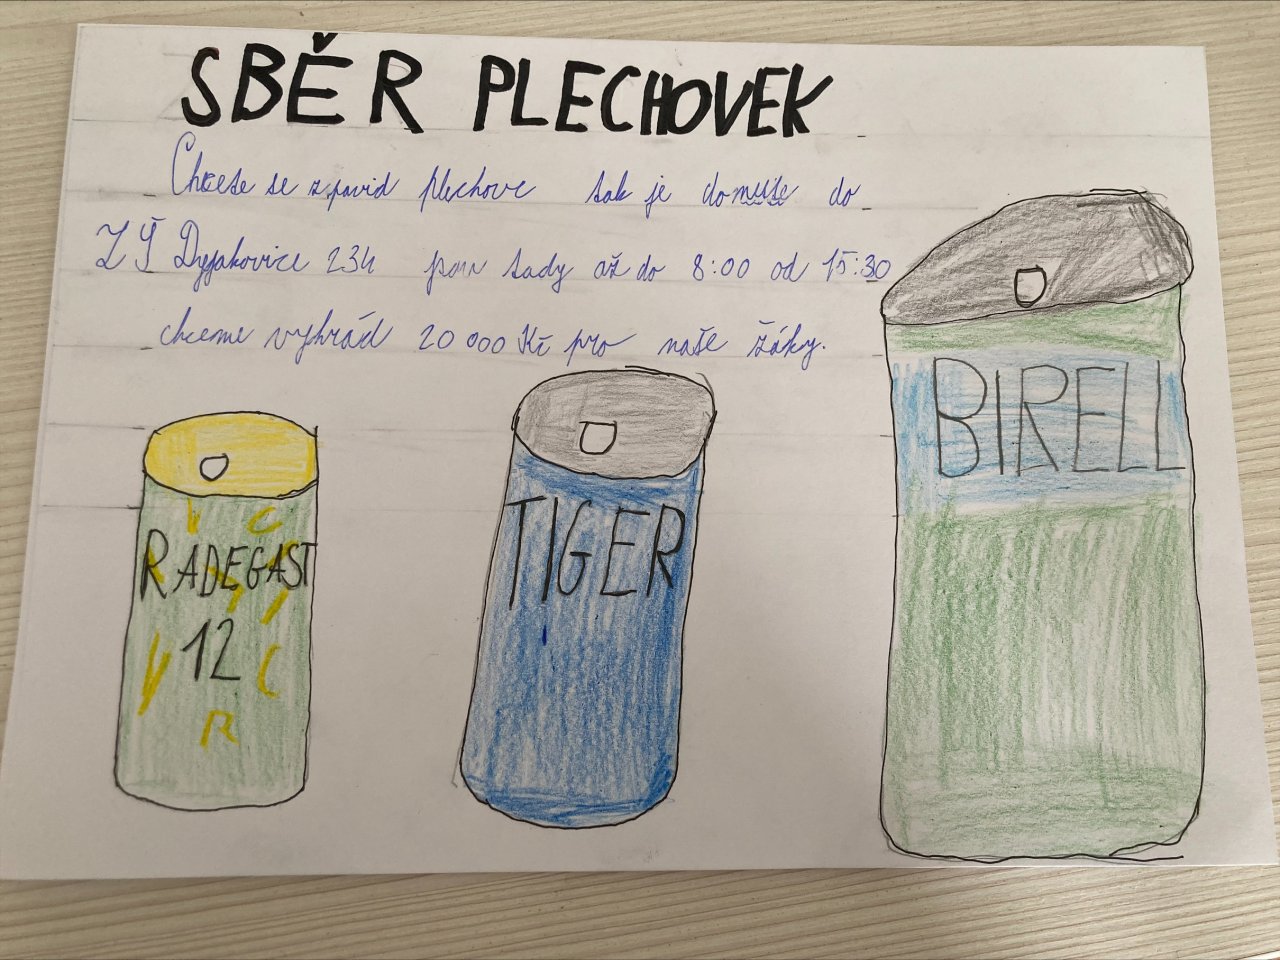 SBĚR PLECHOVEK
Chcete se zpavid plechovc tak je domuse do
ZŠ Dyjakovice 234 tady až do 8:00 od 15:30
chceme vyhrád 20 000 Kč pro naše žáky.
RADEGAST
12
R
TIGER
BIRELL